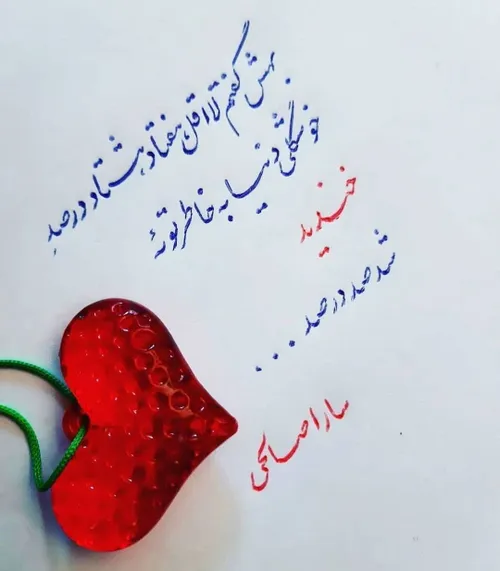 بهش گفتم لااقل هفتاد هشتاد درصد
خوشگلی دنیا به خاطر توئه
خندید
شد صد در صد ...
سارا صالحی